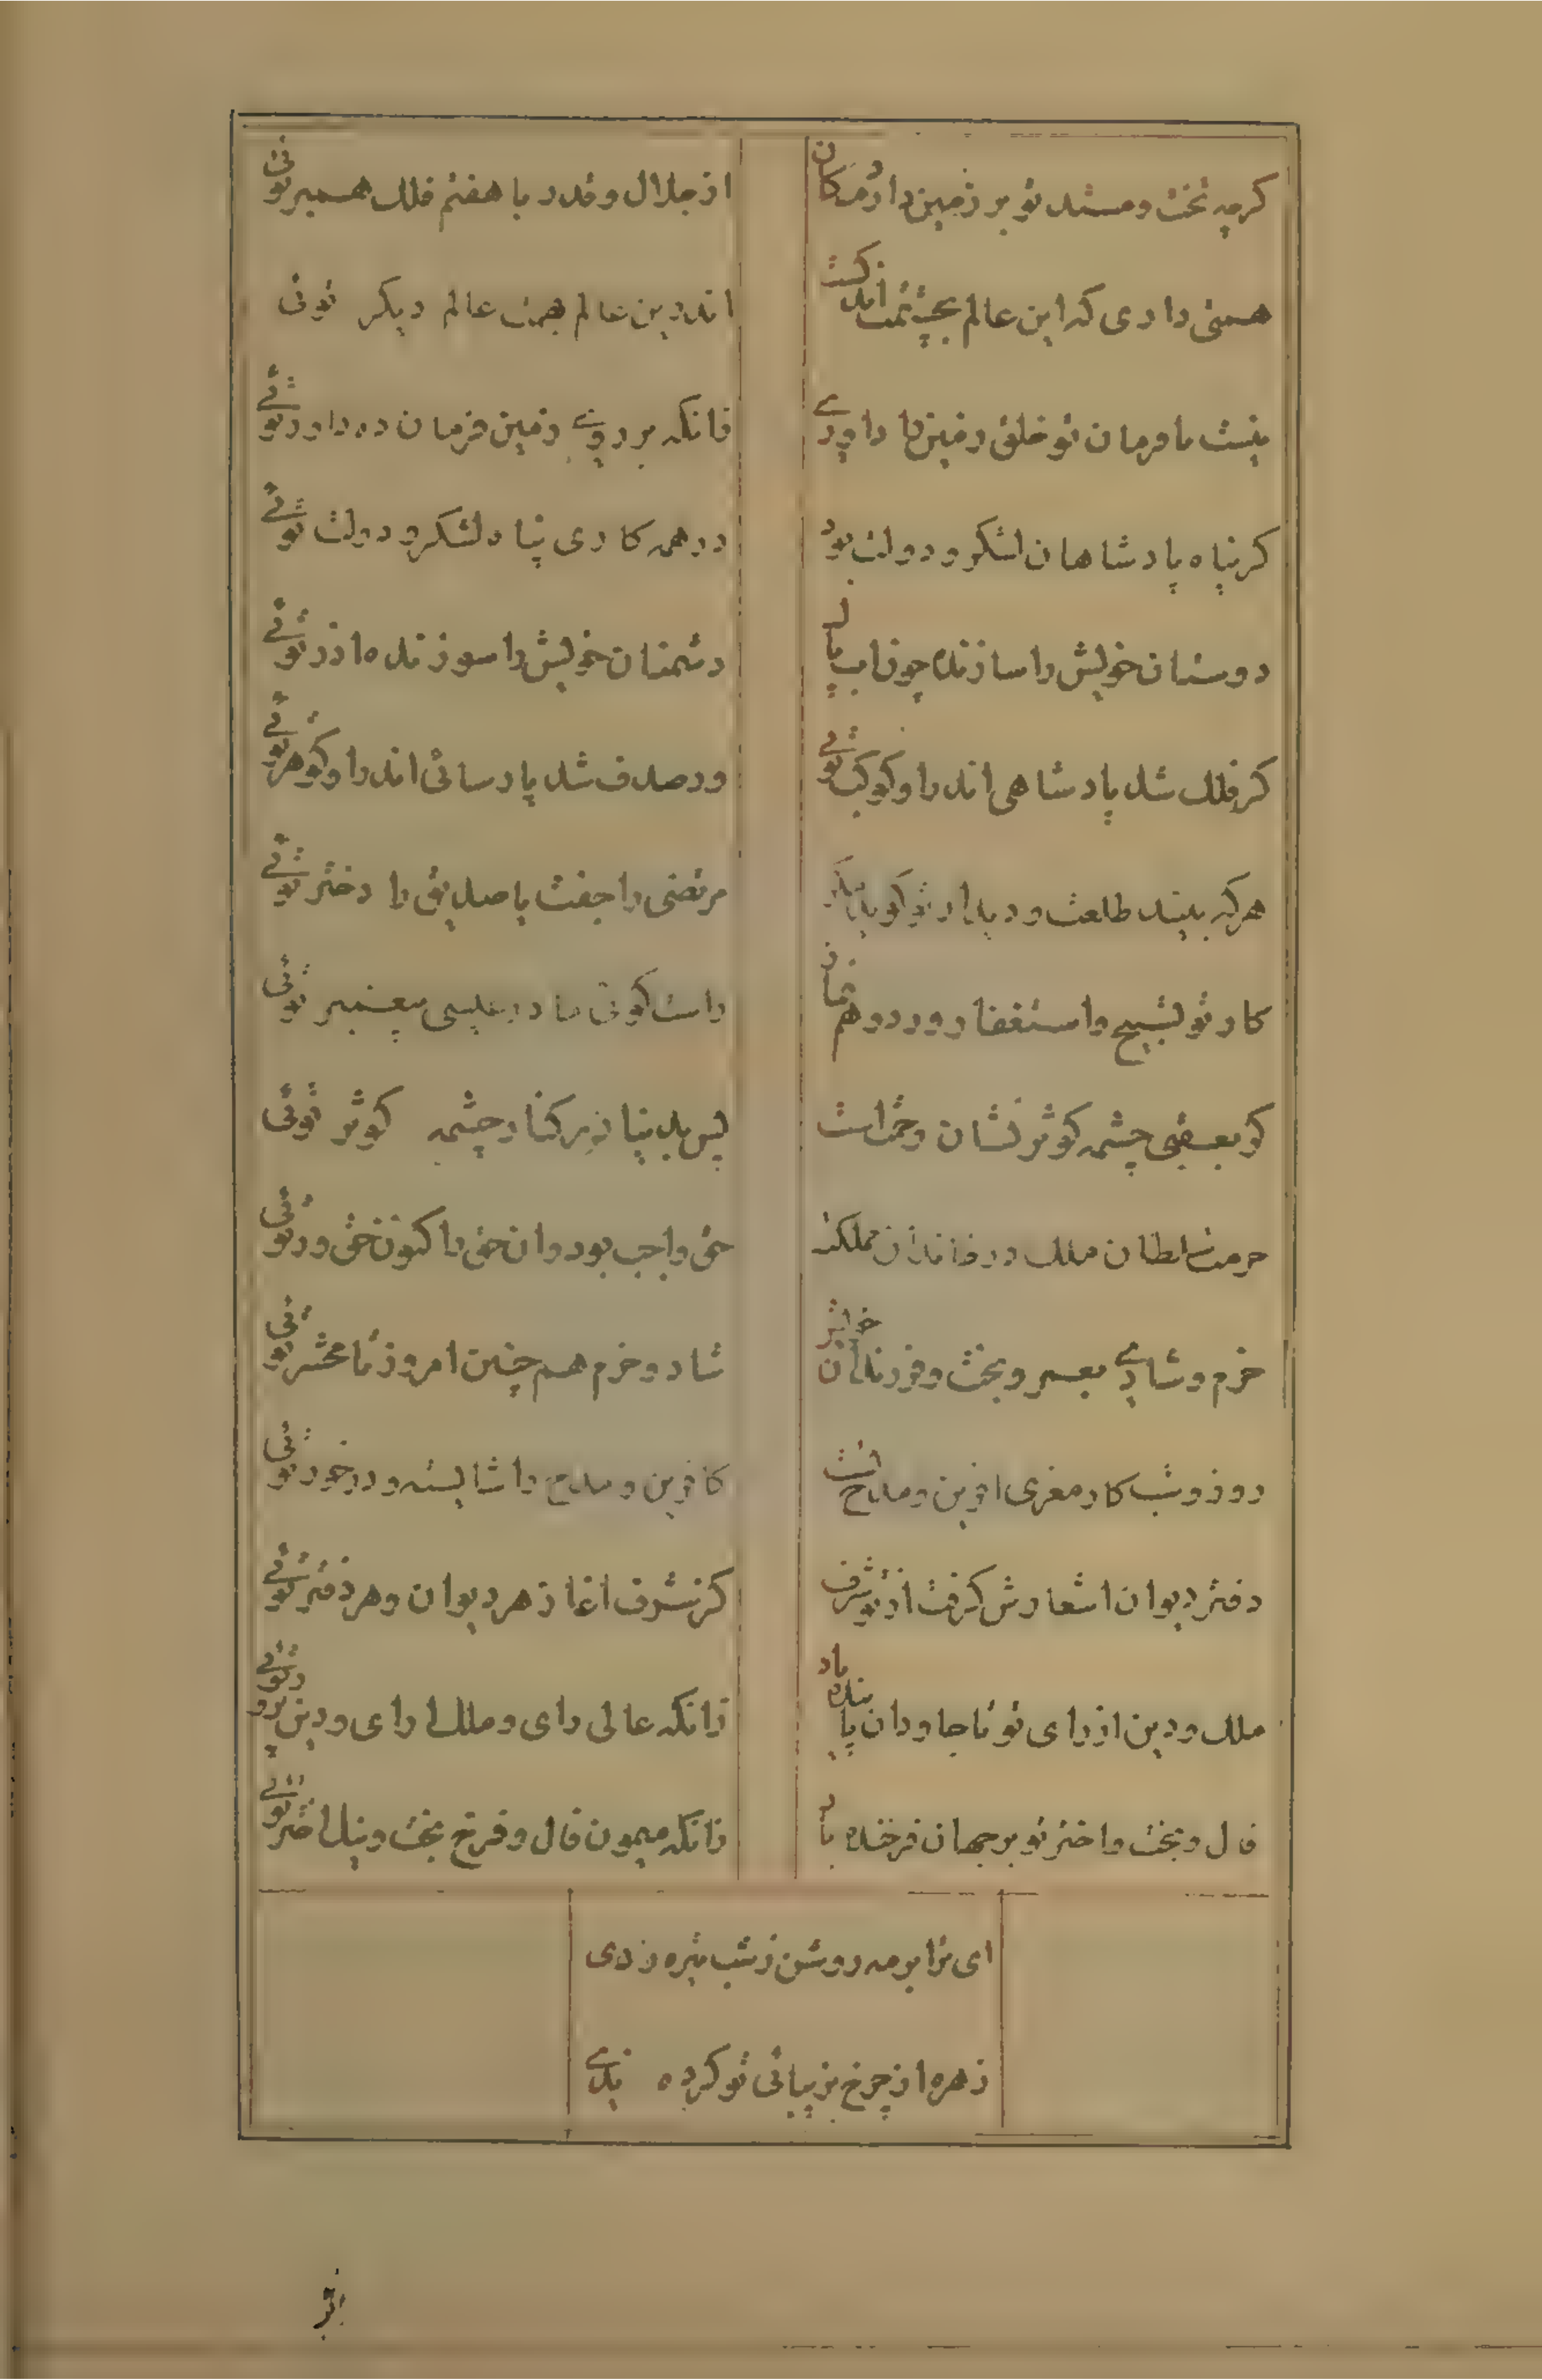 کرچه تخت و مسند تو بر زمین دارد مکان
از جلال و قدر با هفتم فلک همبر توئی
همتی داری که این عالم بچشمت اندکست
اندرین عالم بهمت عالم دیکر توئی
نیست بافرمان تو خلق زمین را داوری
زانکه بر روی زمین فرمان ده و داور توئی
کر پناه پادشاهان لشکر و دولت بود
در همه کاری پناه لشکر و دولت توئی
دوستان خویش را سازنده چون اب زلال
دشمنان خویش را سوزنده اذر توئی
کر فلک شد پادشاهی اندر او کوکب توئی
ور صدف شد پارسائی اندر او کوهر توئی
هرکه بیند طلعت و دیدار تو کوید
مرتضی را جفت یا صدیق را دختر توئی
کار تو تسبیح و استغفار و ورد و
راست کوئی مادر عیسی پیغمبر توئی
کو بعقبی چشمه کوثر نشان رحمتست
پس بدنیا بر کنار چشمه کوثر توئی
حرمت سلطان ملک در خاندان مملکت
حقی واجب بود وان حق را کنون حق ور توئی
خرم و شادی بعمر و بخت و فرزندان
شاد و خرم همچنین امروز تا محشر توئی
روز و شب کار معزی افرین و مدح تست
کافرین و مدح را شایسته و درخور توئی
دفتر دیوان اشعارش کرفت از تو شرف
کز شرف اغاز هر دیوان و هر دفتر توئی
ملک و دین از رای تو تا جاودان پاینده باد
زانکه عالی رای و ملک ارای و دین پرور توئی
فال و بخت و اختر تو بر جهان فرخنده باد
زانکه میمون فال و فرخ بخت و نیک اختر توئی
ای ترا بر مه روشن ز شب تیره ردی
زهره از چرخ بزیبائی تو کرده ندی